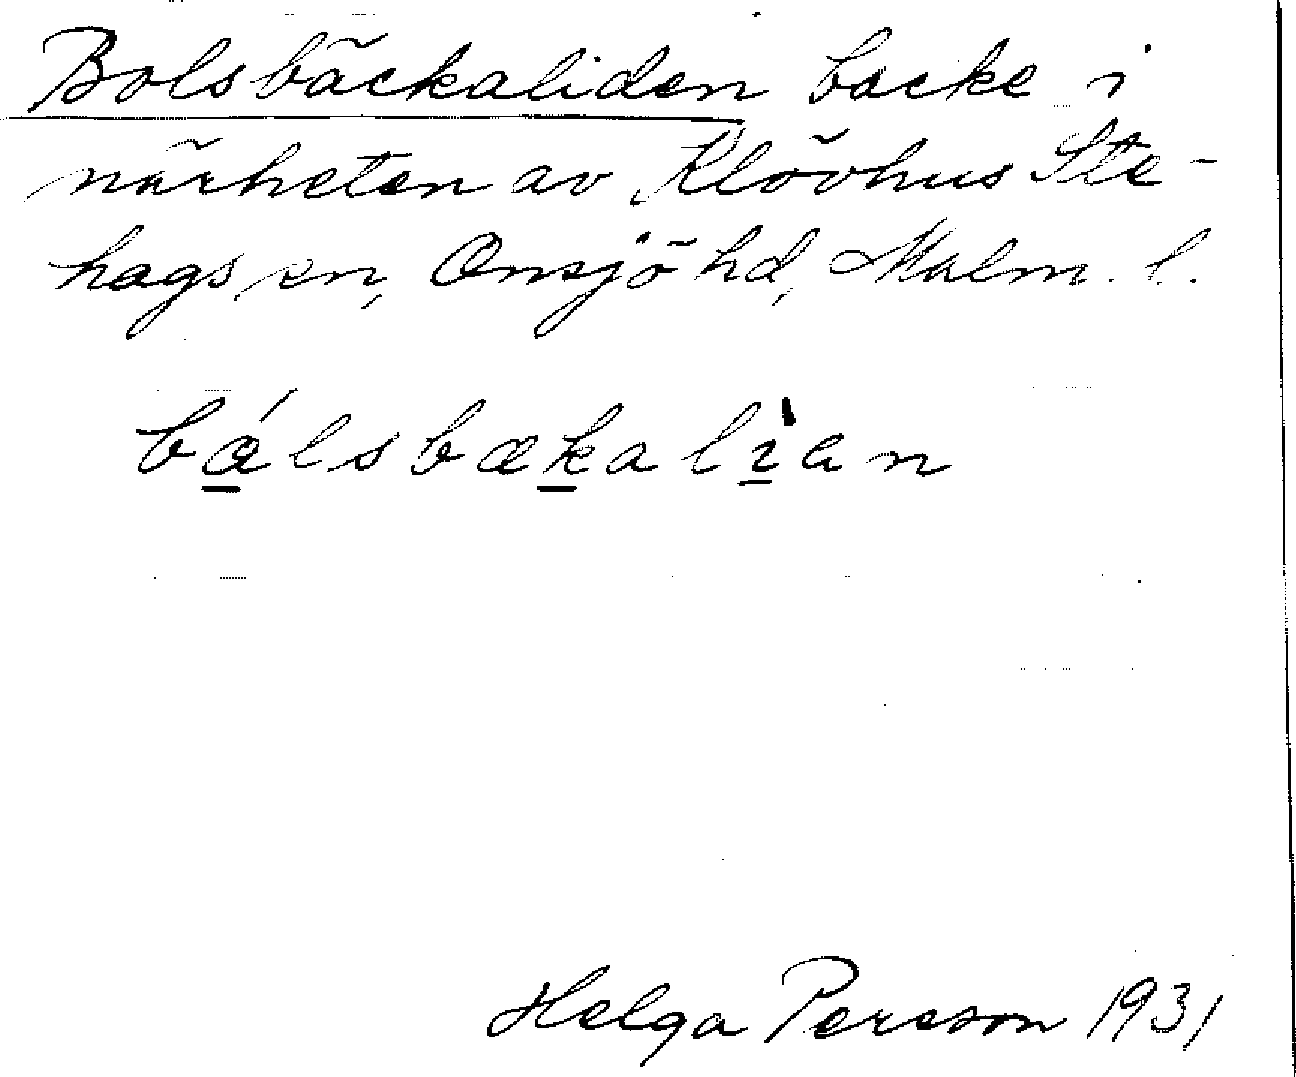 Bolsbäckaliden backe i
närheten av Klövhus Ste-
hags sn, Onsjö hd, Malm. l.
bǽlsbækalìan
Helga Person 1931